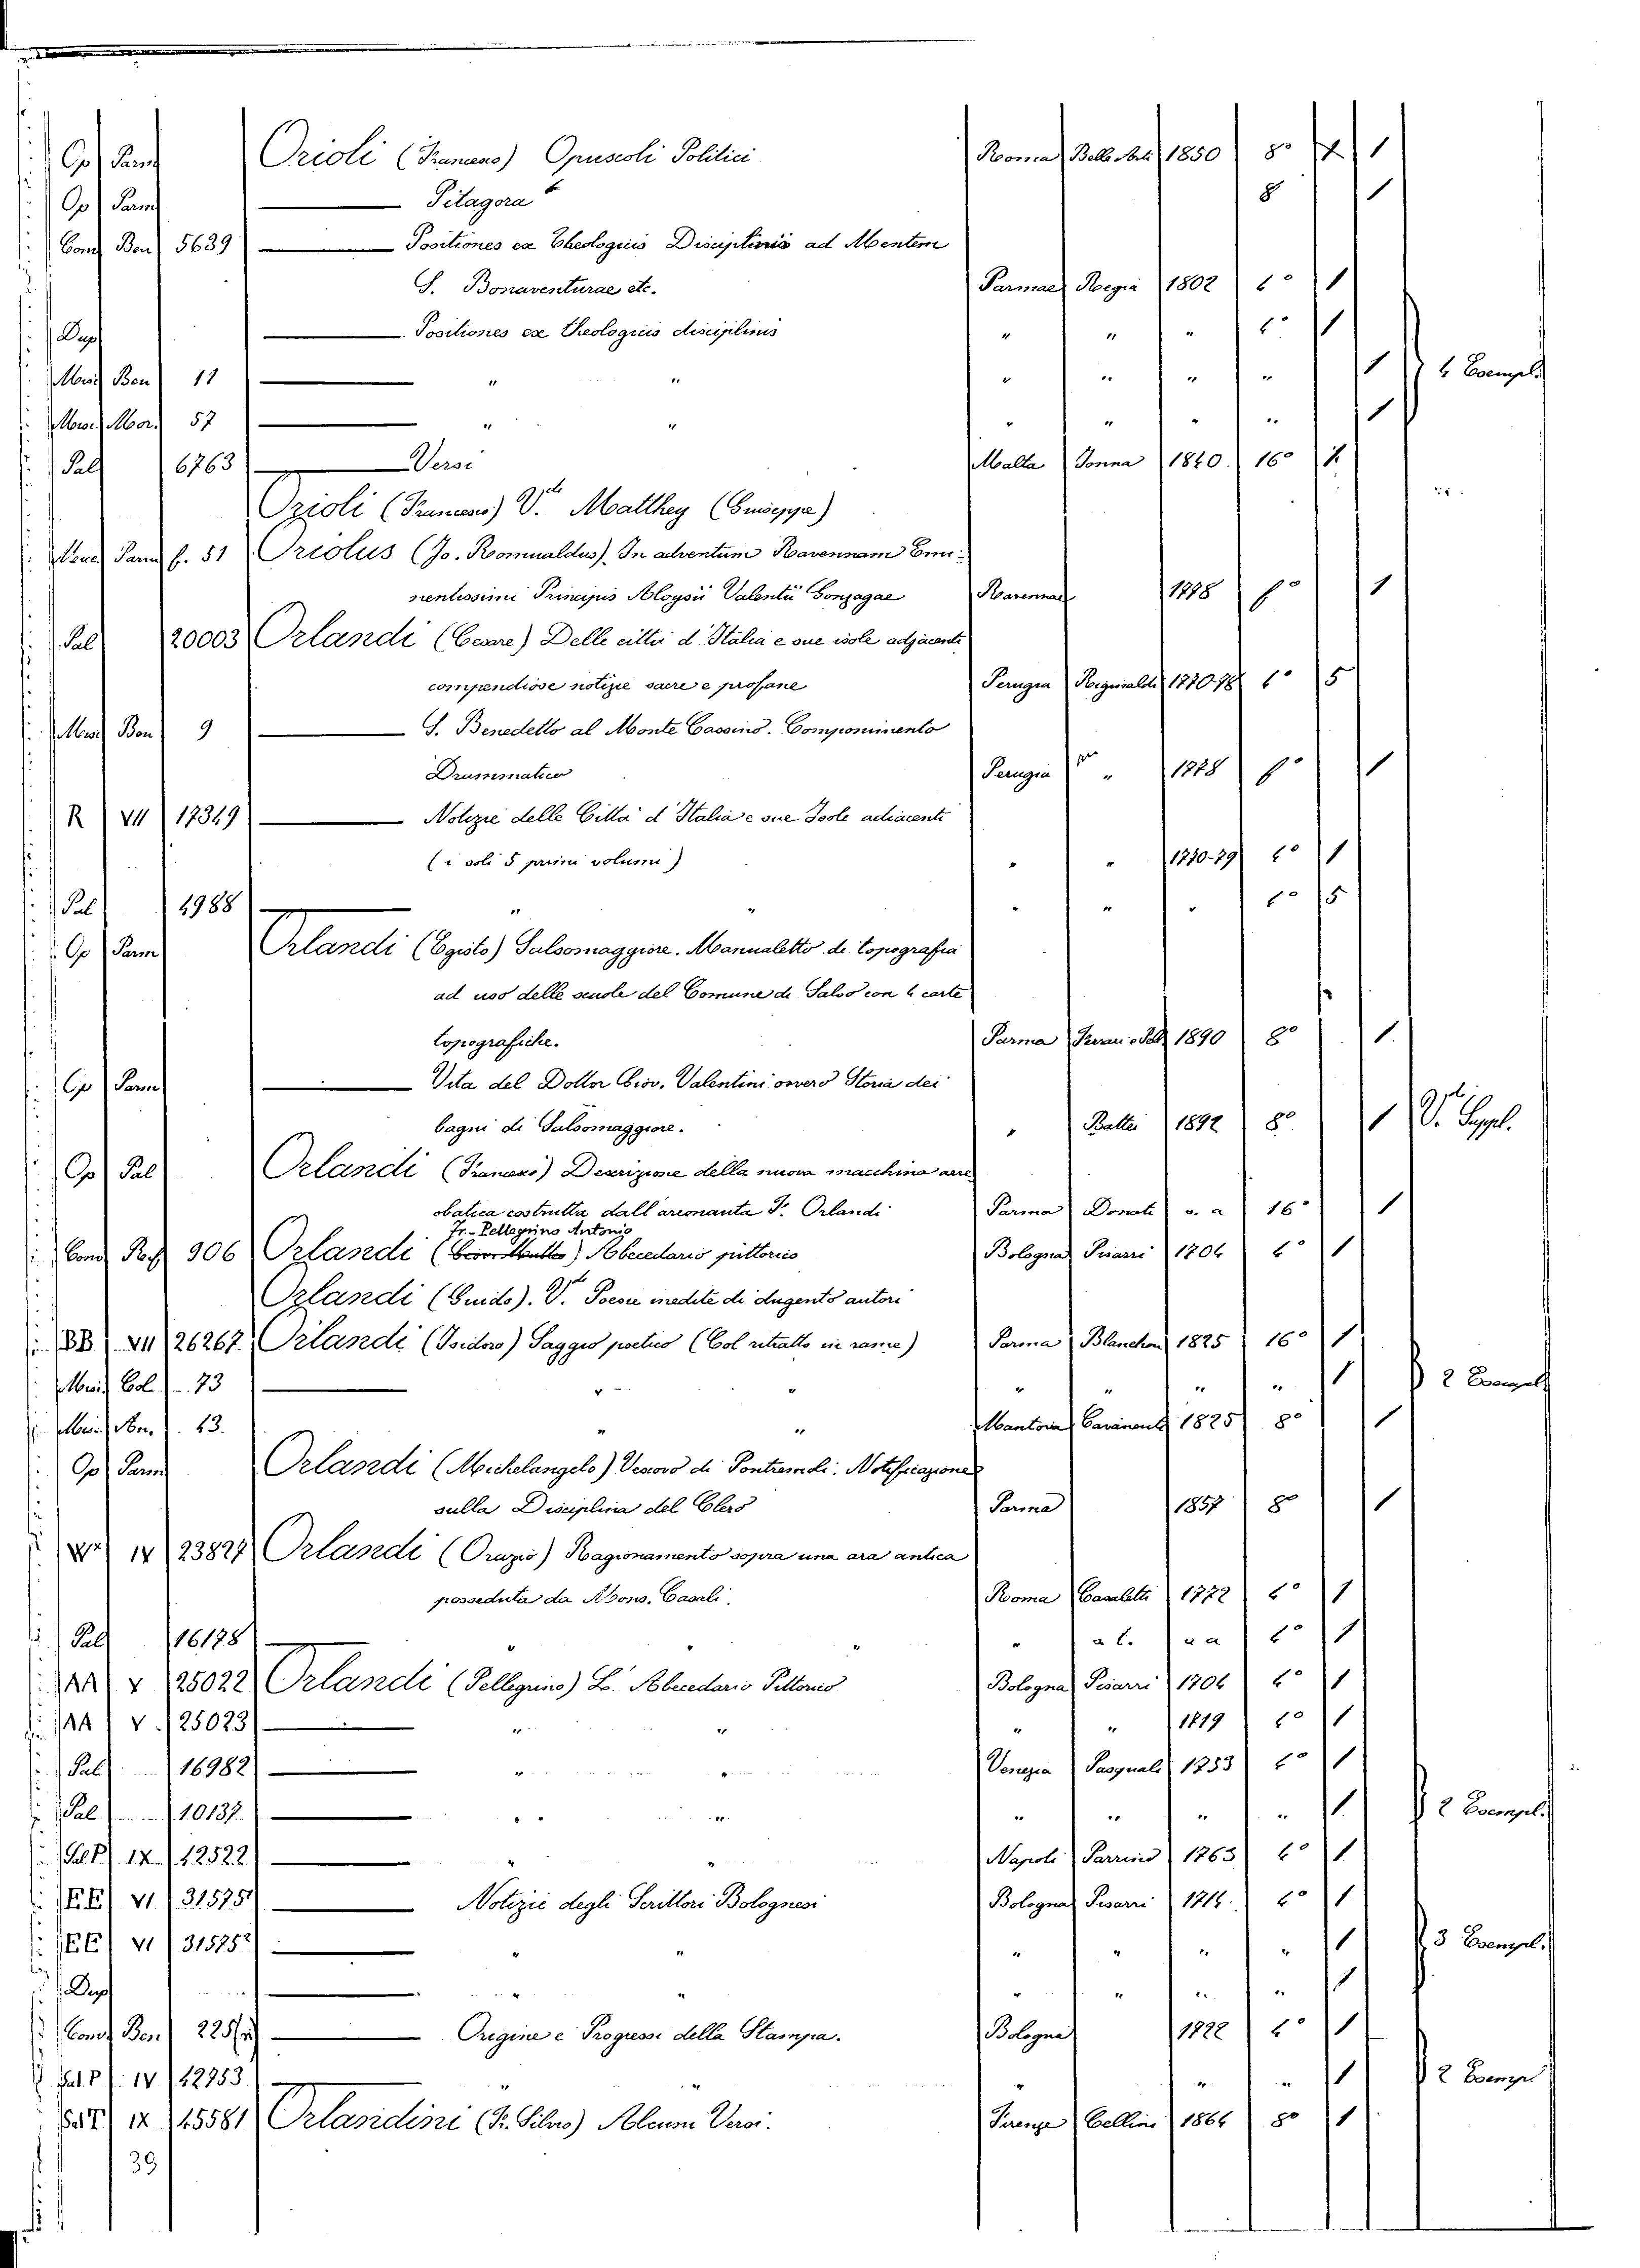 Op Parm Orioli (Francesco) Opuscoli Politici Roma Belle Arti 1850 8° 1
Op Parm Pitagora 8 1
Conv Ben 5639 Positiones ex Theologicis Disciplinis ad Mentem
S. Bonaventurae etc. Parmae Regia 1802 4° 1
Dup Positiones ex theologicis disciplinis " " " 4° 1
Misc Ben 11 " " " " " " 1 4 Esempl.
Misc. Mor. 57 " " " " " " 1
Pal 6763 Versi Malta Tonna 1840. 16° 1
Orioli (Francesco) V.de Matthey (Giuseppe)
Parm f. 51 Oriolus (Jo. Romualdus). In adventum Ravennam Emi-
nentissimi Principis Aloysii Valentii Gonzagae Ravennae 1778 f° 1
Pal 20003 Orlandi (Cesare) Delle città d'Italia e sue isole adjacenti
compendiose notizie sacre e profane Perugia 1770-78 4° 5
Misc Ben 9 S. Benedetto al Monte Cassino. Componimento
Drammatico Perugia " 1778 f° 1
R VII 17349 Notizie delle Città d'Italia e sue Isole adiacenti
(i soli 5 primi volumi) " " 1770-79 4° 1
Pal 4988 " " " " " 4° 5
Op Parm Orlandi (Egisto) Salsomaggiore. Manualetto di topografia
ad uso delle scuole del Comune di Salso con 4 carte
topografiche. Parma 1890 8° 1.
Op Parm Vita del Dottor Giov. Valentini ovvero Storia dei
bagni di Salsomaggiore. " Battei 1892 8° 1 V. Suppl.
Op Pal Orlandi (Francesco) Descrizione della nuova macchina aere
obatica costrutta dall'areonauta F. Orlandi Parma Donati s. a 16° 1
Fr. Pellegrino Antonio
Conv 306 Orlandi () Abecedario pittorico Bologna Pisarri 1704 4° 1
Orlandi (Guido). V.de Poesie inedite di dugento autori
BB VII 26267 Orlandi (Isidoro) Saggio poetico (Col ritratto in rame) Parma Blanchon 1825 16° 1
Misc Col. 73 " " " " " " 1 2 Esempl
Misc 43. " " Mantova 1825 8° 1
Op Parm Orlandi (Michelangelo) Vescovo di Pontremoli. Notificazione
sulla Disciplina del Clero Parma 1857 8° 1
IV 23827 Orlandi (Orazio) Ragionamento sopra una ara antica
posseduta da Mons. Casali. Roma Casaletti 1772 4° 1
Pal 16178 " " " a l. a a 4° 1
AA V 25022 Orlandi (Pellegrino) L'Abecedario Pittorico Bologna Pisarri 1704 4° 1
AA V 25023 " " " " 1719 4° 1
Pal 16982 " " Venezia Pasquali 1753 4° 1
Pal 10137 " " " " " " 1 2 Esempl.
Pal P IX 42522 " " Napoli 1763 4° 1
EE VI. 31575¹ Notizie degli Scrittori Bolognesi Bologna Pisarri 1714. 4° 1
EE VI 31575² " " " " " " 1 3 Esempl.
Dup " " " " " " 1
Conv Ben 225 Origine e Progressi della Stampa. Bologna 1722 4° 1
Pal. P IV 42753 " " " " " 1 2 Esempl
Pal P IX 45581 Orlandini (F. Silvio) Alcuni Versi. Firenze Cellini 1864 8° 1
39